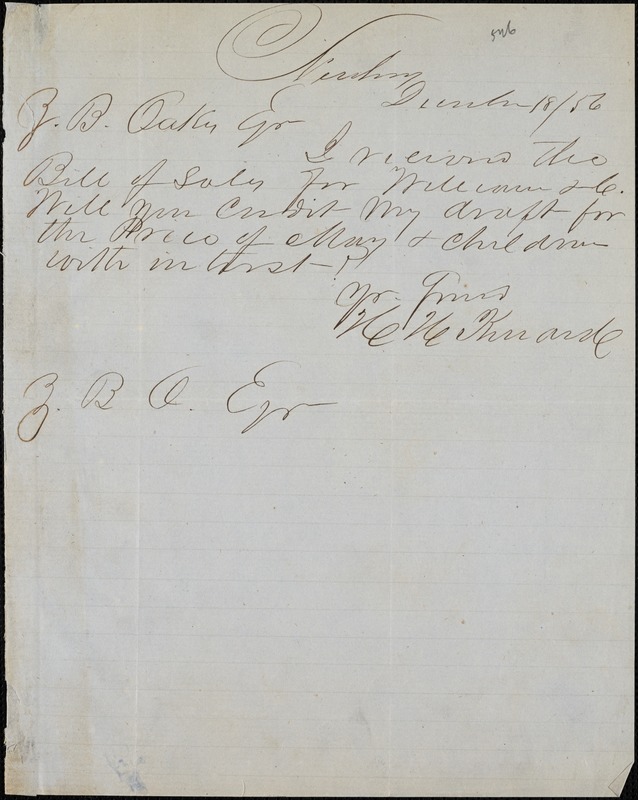 546
Newberry
December 18/56
Z. B. Oakes Esqr
I received the
Bill of Sales for William &C.
Will you Credit My draft for
the Price of Mary & children
with interest?
yr. friend
H H Kinard
Z. B. O. Esqr